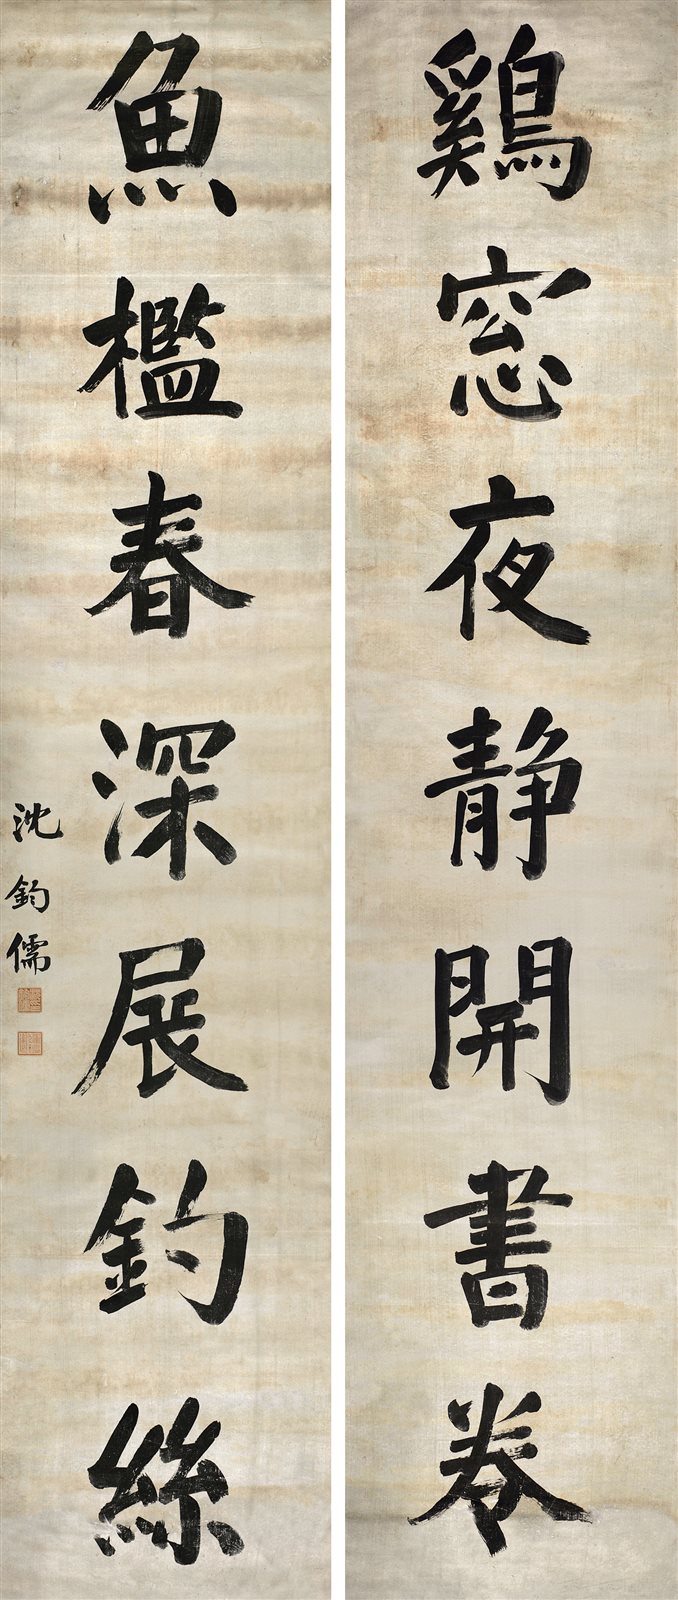 鷄窓夜静開書卷
魚檻春深展釣絲
沈鈞儒